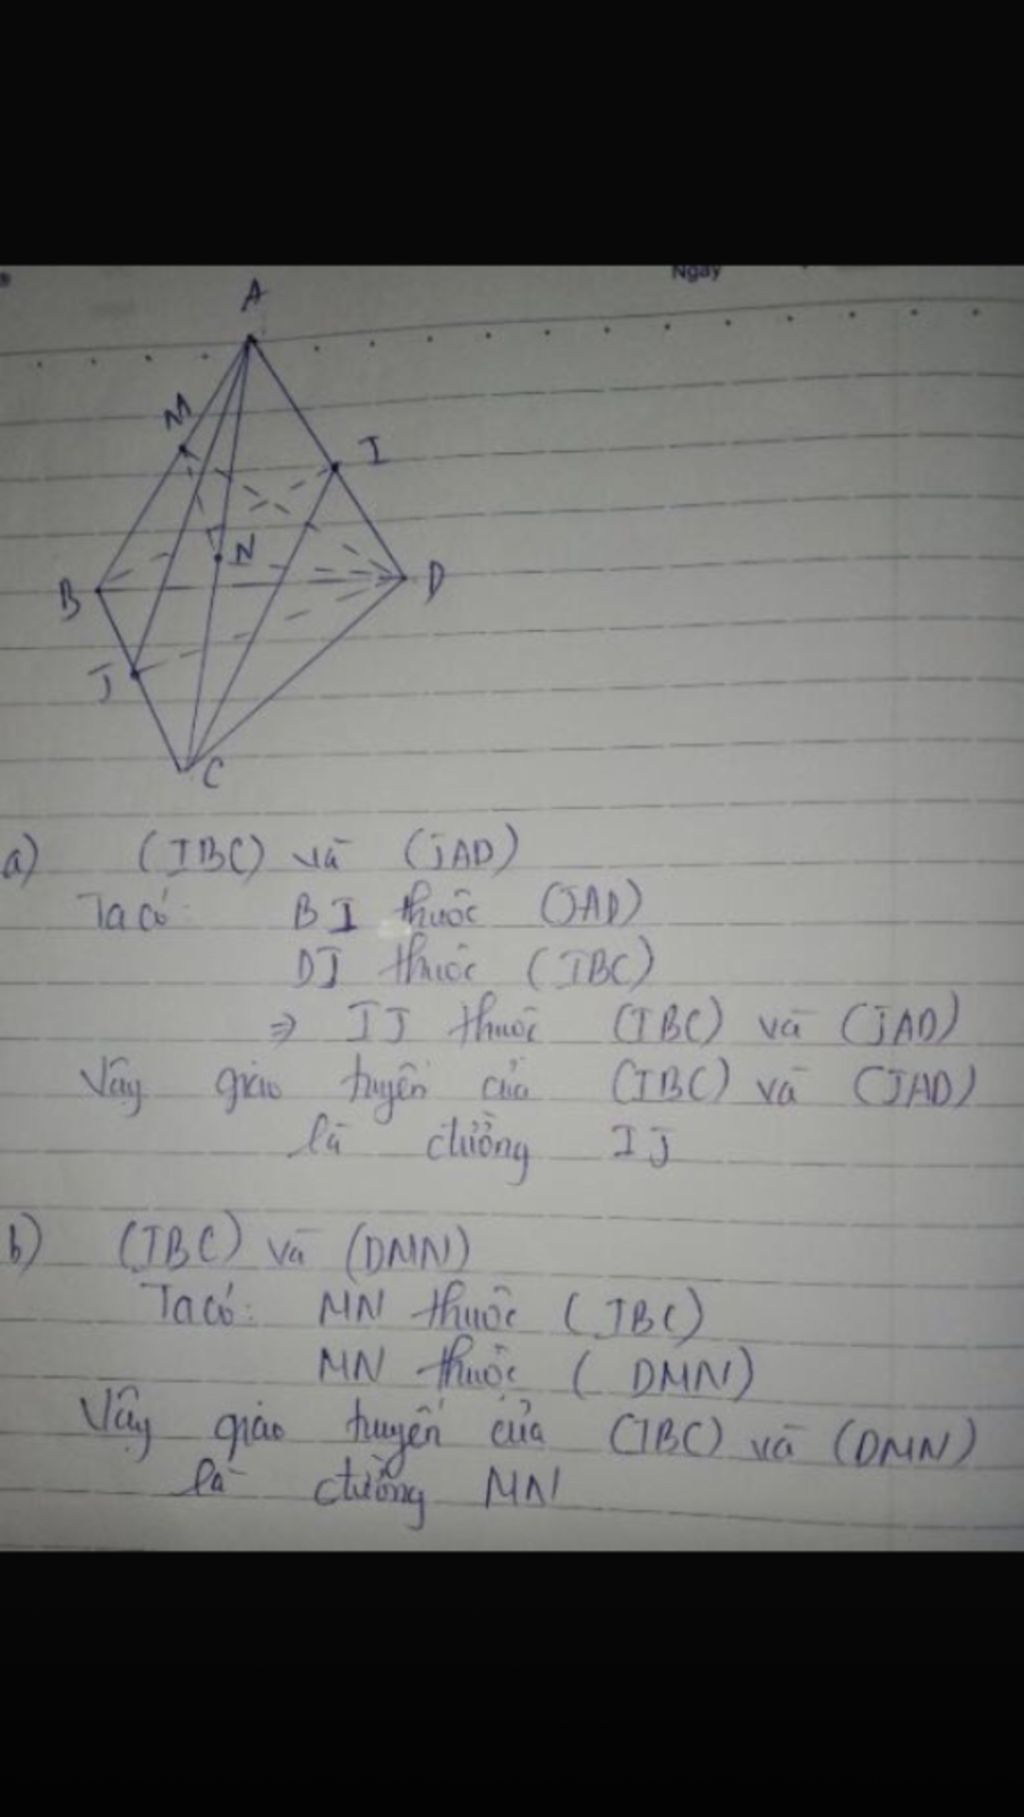 Ngày
A
M
I
N
B
D
J
C
a) (IBC) và (JAD)
Ta có: BI thuộc (JAD)
DJ thuộc (IBC)
=> IJ thuộc (IBC) và (JAD)
Vậy giao tuyến của (IBC) và (JAD)
là đường IJ
b) (IBC) và (DMN)
Ta có: MN thuộc (IBC)
MN thuộc (DMN)
Vậy giao tuyến của (IBC) và (DMN)
là đường MN